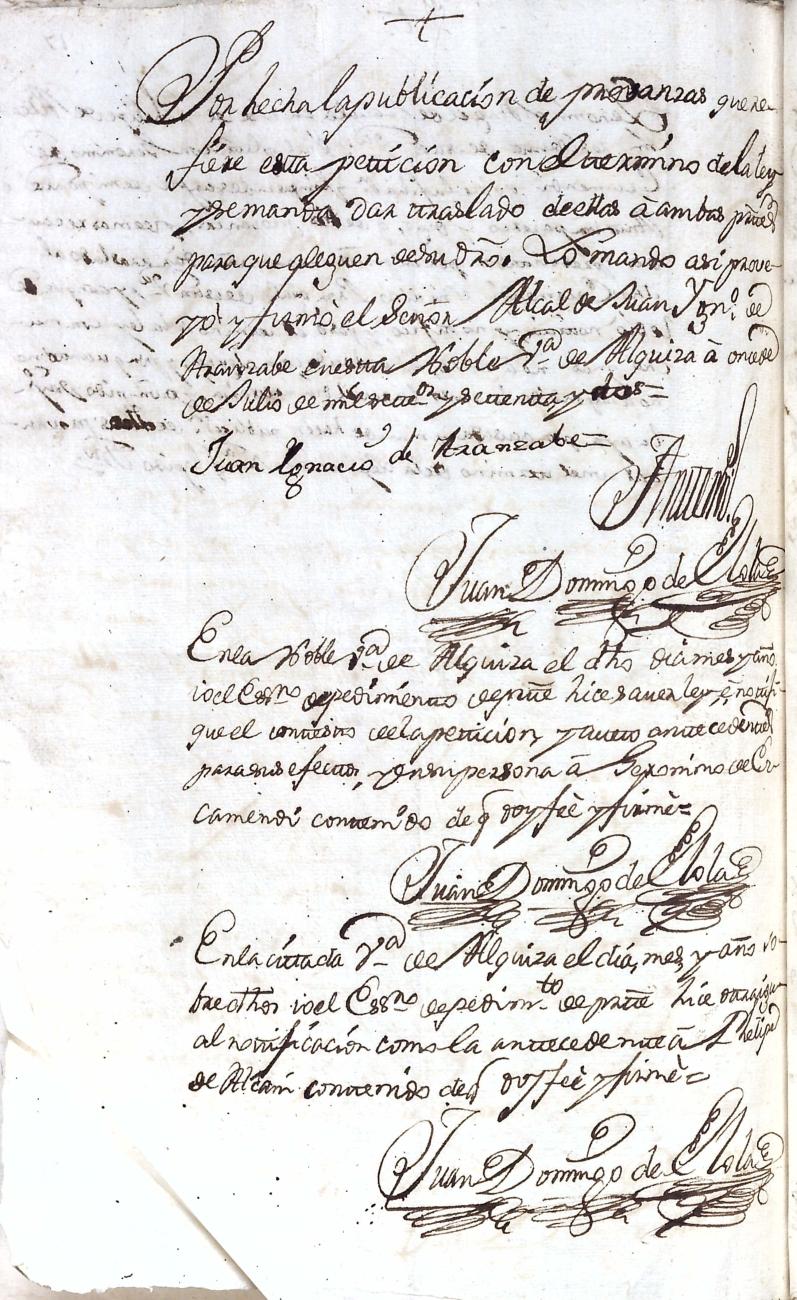 Por hecha la publicacion de provanzas que re-
fiere esta peticion con el termino de la ley
y se manda dar traslado de ellas â ambas partes
para que aleguen de su dro. Lo mando asi prove-
yò y firmò el Señor Alcalde Juan Ygno. de
Aranzabe en esta Noble Va. de Alquiza â once de
de Julio de mil setetos. y setenta y dos=
Juan Ygnacio de Aranzabe=
Antemi
Juan Domingo de Elola
En la Noble Va. de Alquiza el dho dia mes y año
io el Essno de pedimento de parte hice saver ley, è notifi-
que el contesto de la peticion, y auto antecedentes
para sus efectos, y en su persona â Geronimo de
camendi contenido de q doy feè y firmè=
Juan Domingo de Elola
En la citada Va. de Alquiza el dia, mes, y año so-
bre dhos io el Essno de pedimto de parte hice otra igu-
al notificacion como la antecedente â Phelipe
de contenido de q doy feè y firmè=
Juan Domingo de Elola